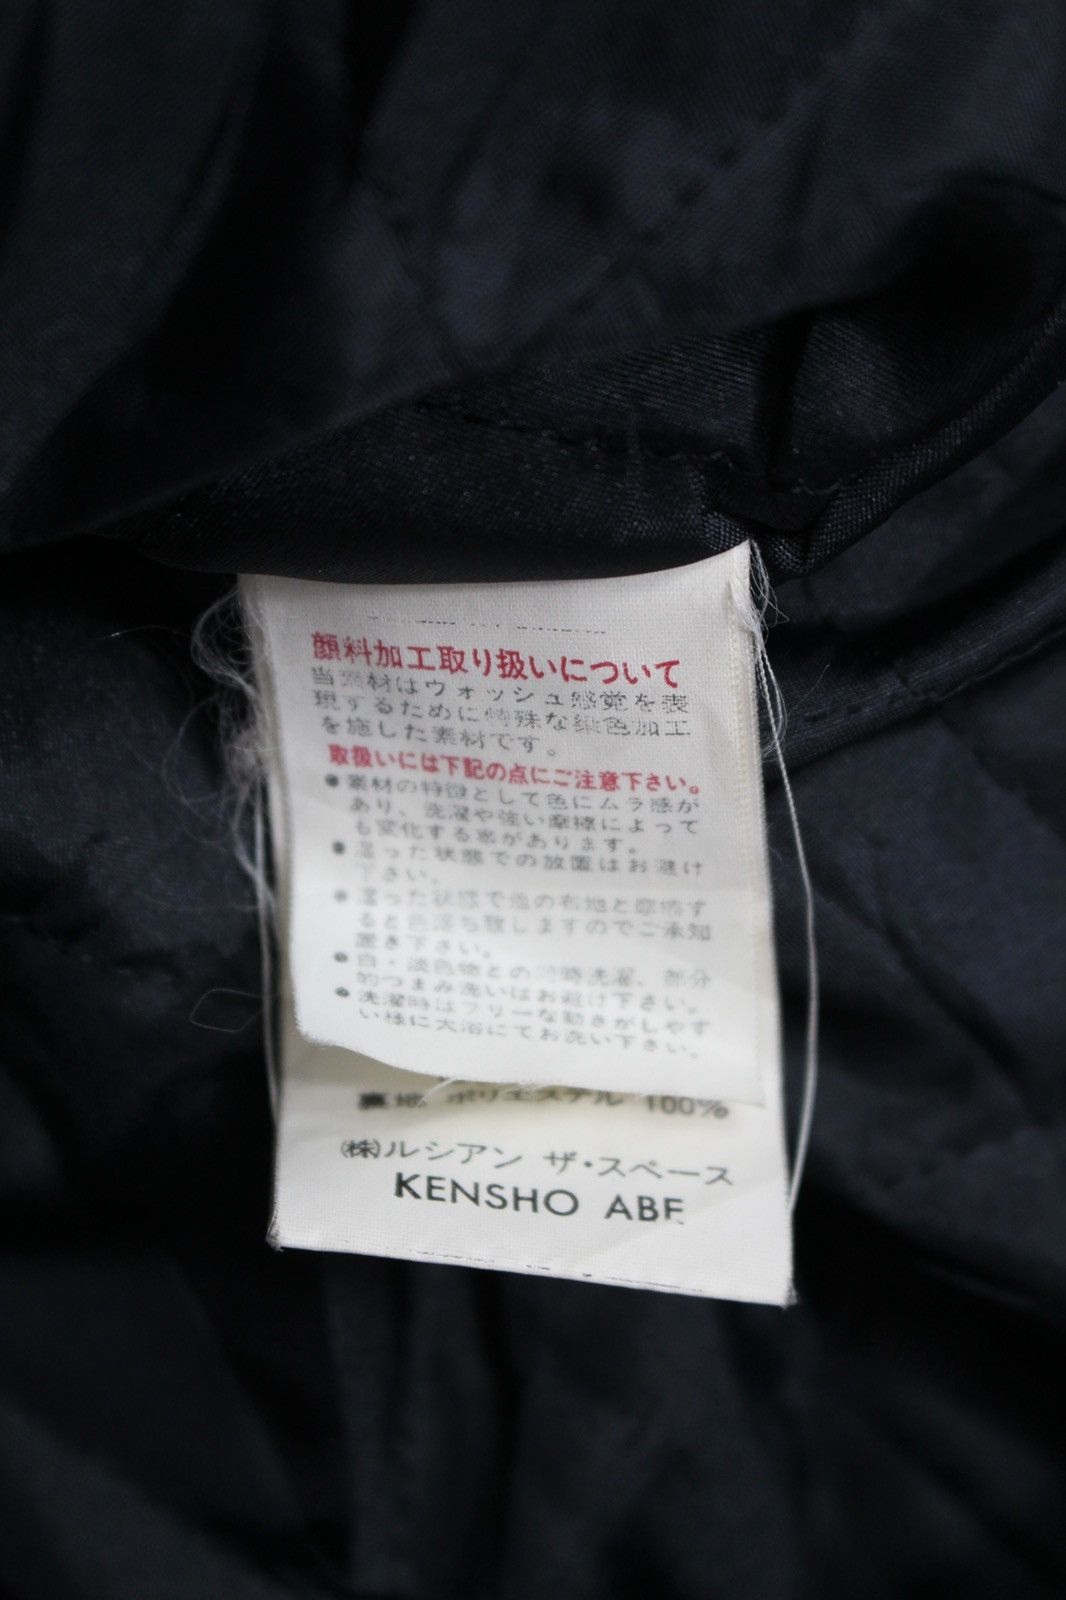 顔料加工取り扱いについて
当素材はウォッシュ感覚を表
現するために特殊な染色加工
を施した素材です。
取扱いには下記の点にご注意下さい。
●素材の特徴として色にムラ感が
あり、洗濯や強い摩擦によって
も変化する事があります。
●湿った状態での放置はお避け
下さい。
●湿った状態で他の布地と摩擦す
ると色落ち致しますのでご承知
置き下さい。
●白・淡色物との同時洗濯、部分
的つまみ洗いはお避け下さい。
●洗濯時はフリーな動きがしやす
い様に大浴にてお洗い下さい。
裏地 ポリエステル 100%
㈱ルシアン ザ・スペース
KENSHO ABE